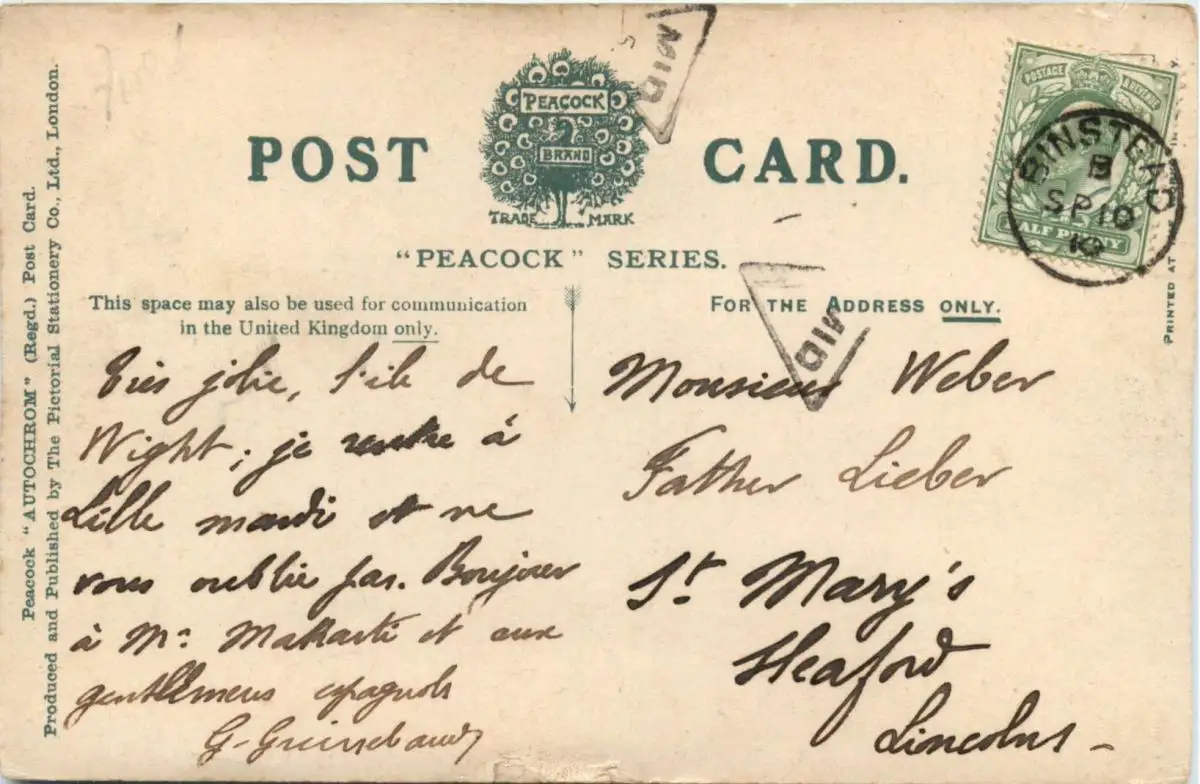 Peacock "AUTOCHROM" (Regd.) Post Card.
Produced and Published by The Pictorial Stationery Co., Ltd., London.
POST CARD.
PEACOCK
BRAND
TRADE MARK
"PEACOCK" SERIES.
MID
POSTAGE
HALF PENNY
BINSTEAD
B
SP 10
10
PRINTED AT
This space may also be used for communication
in the United Kingdom only.
FOR THE ADDRESS ONLY.
MID
Très jolie, l'île de
Wight; je rentre à
Lille mardi et ne
vous oublie pas. Bonjour
à Mr. Makarti et aux
gentllemens espagnols
G.
Monsieur Weber
Father Lieber
St. Mary's
Sleaford
Lincolns -